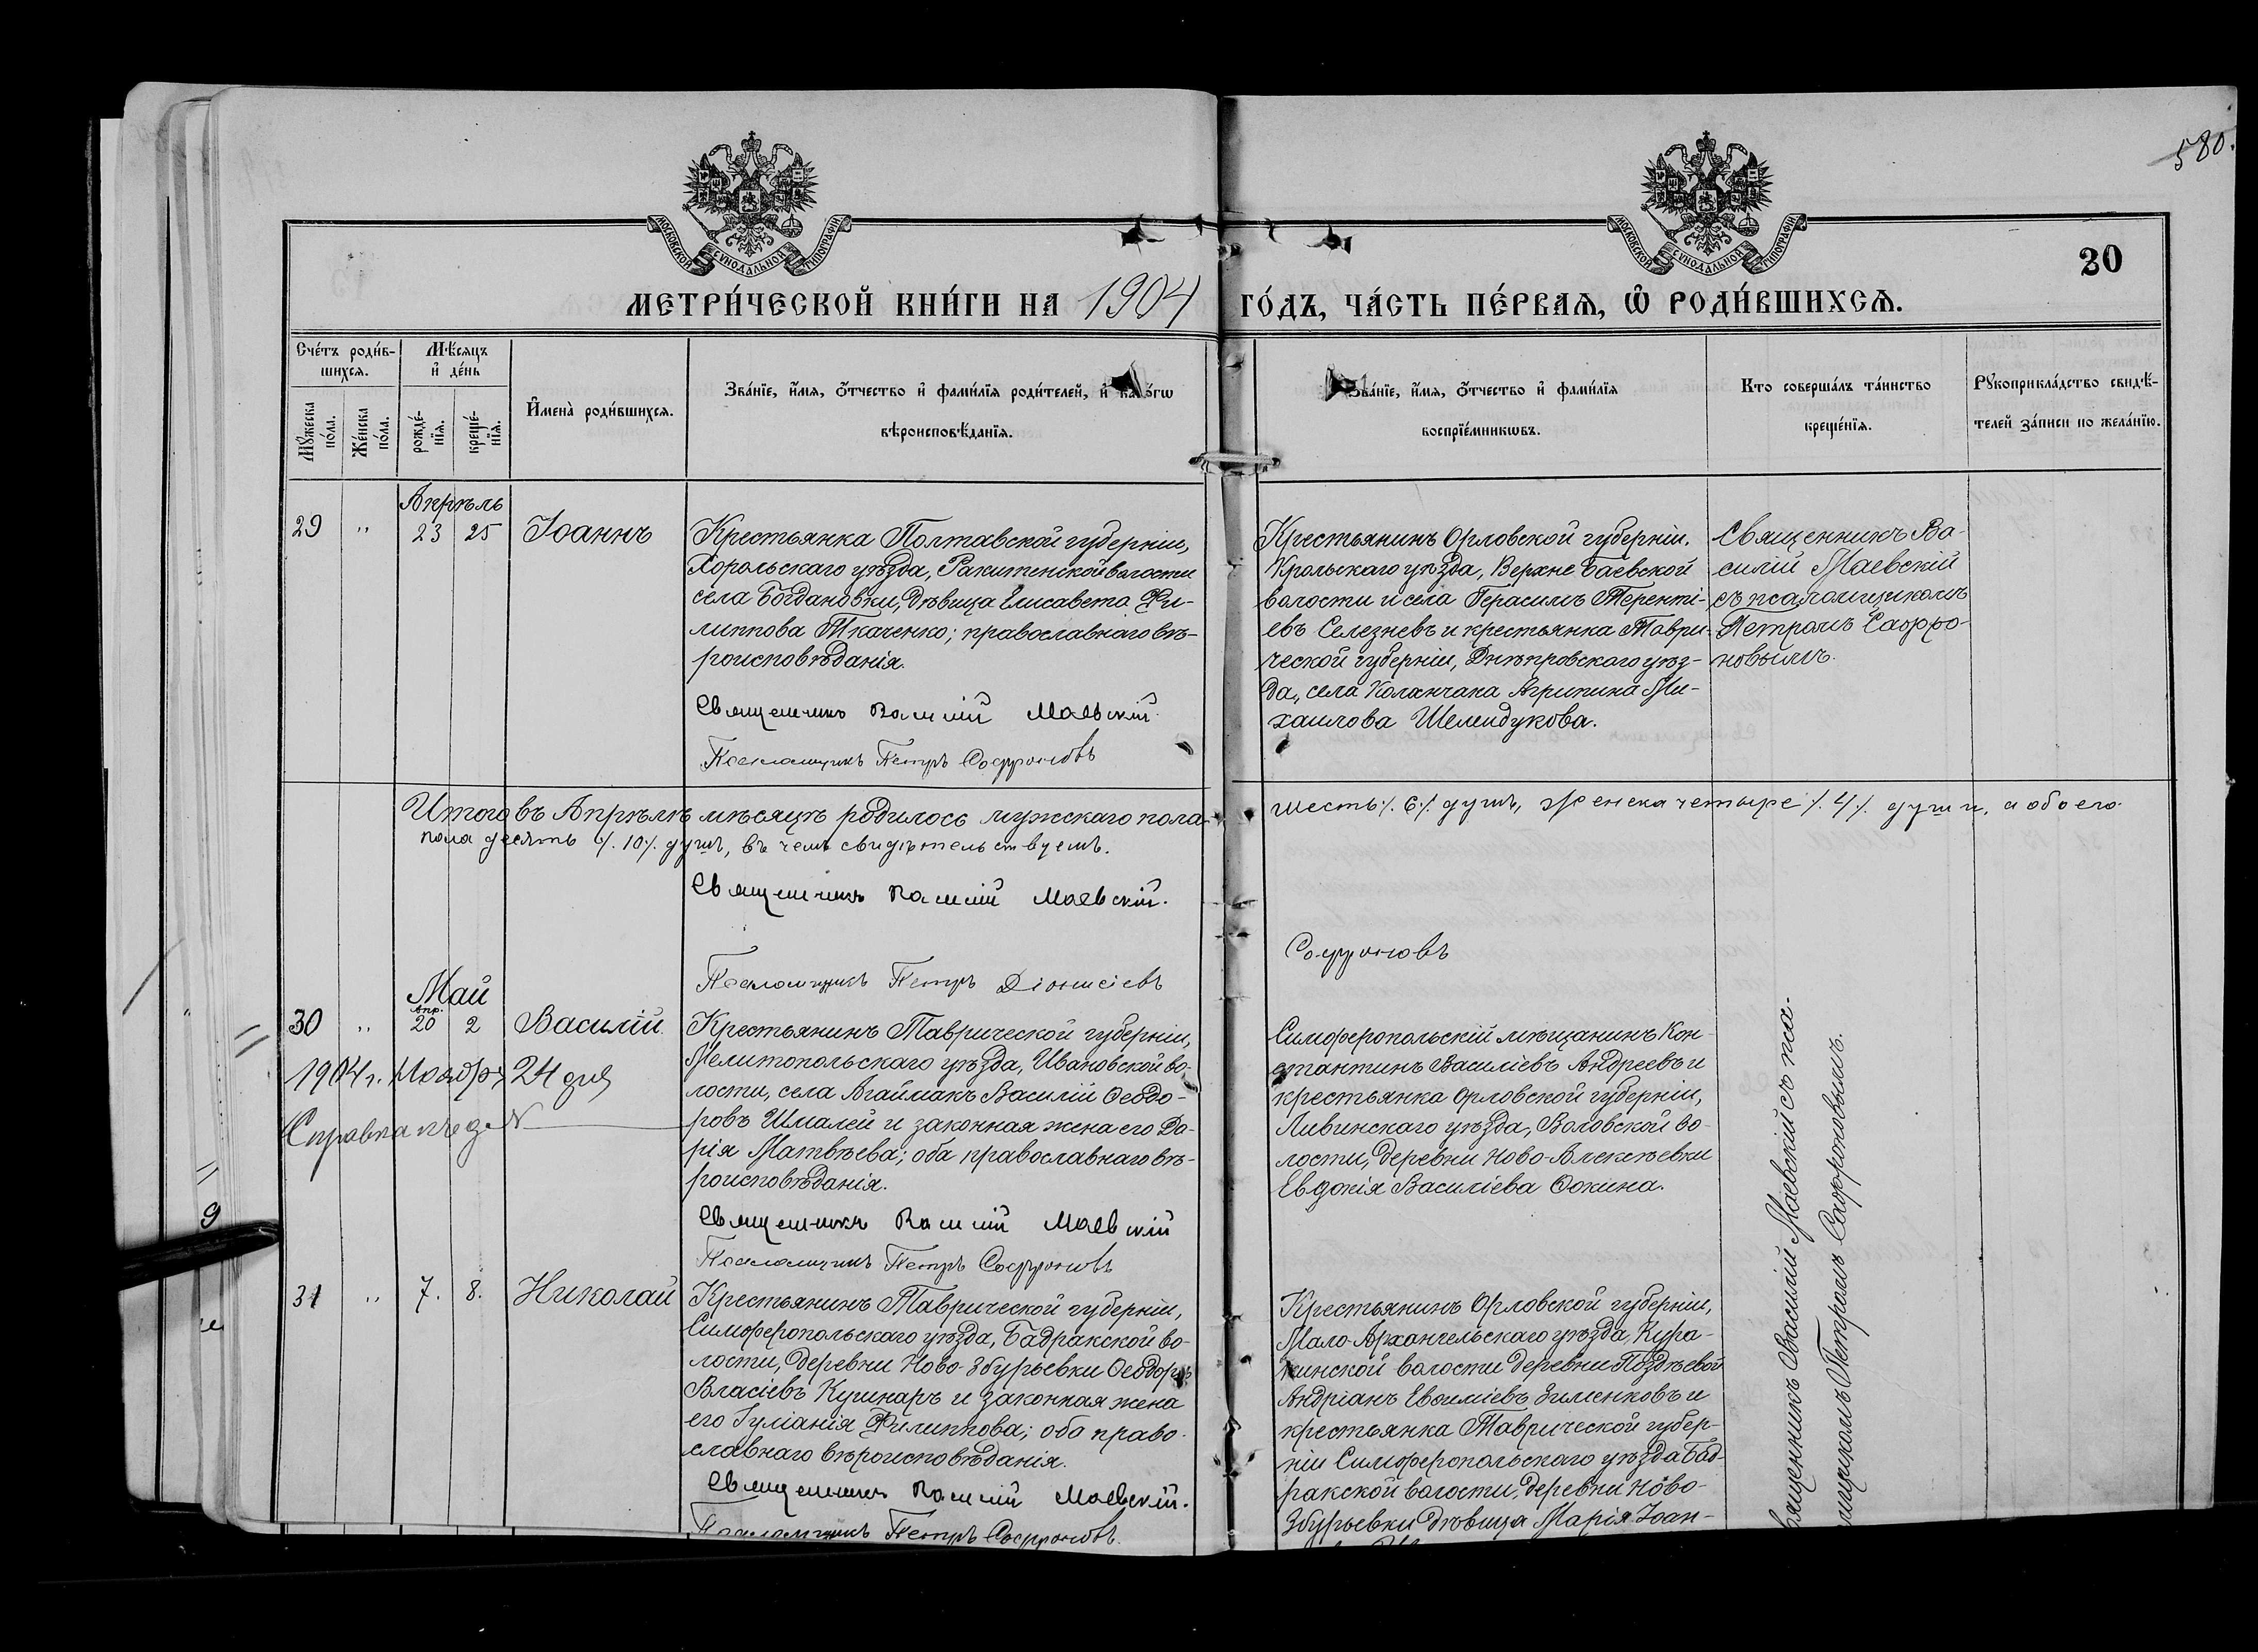 580.
МОСКОВСКОЙ СѴНОДАЛЬНОЙ ТИПОГРАФІИ
МОСКОВСКОЙ СѴНОДАЛЬНОЙ ТИПОГРАФІИ
20
МЕТРИ́ЧЕСКОЙ КНИ́ГИ НА 1904 ГО́ДЪ, ЧА́СТЬ ПЕ́РВАѦ, Ѡ҆ РОДИ́ВШИХСѦ.
Сче́тъ роди́в-
шихсѧ.
Мꙋ́жеска
по́ла.
Же́нска
по́ла.
Мѣ́сѧцъ
и҆ де́нь
рожде́-
нїѧ.
креще́-
нїѧ.
И҆мена̀ роди́вшихсѧ.
Зва́нїе, и҆́мѧ, ѻ҆́тчество и҆ фами́лїѧ роди́телей, и҆ како́гѡ
вѣроисповѣ́данїѧ.
Зва́нїе, и҆́мѧ, ѻ҆́тчество и҆ фами́лїѧ
воспрїе́мникѡвъ.
Кто соверша́лъ та́инство
креще́нїѧ.
Рꙋкоприкла́дство свидѣ́-
телей за́писи по жела́нїю.
Апрѣль
29 " 23 25 Іоаннъ
Крестьянка Полтавской губерніи,
Хорольскаго уѣзда, Ракитенской волости
села Богдановки, дѣвица Елисавета Фи-
липпова Ткаченко; православнаго вѣ-
роисповѣданія.
Священникъ Василій Маевскій.
Псаломщикъ Петръ Софроновъ
Крестьянинъ Орловской губерніи.
Крольскаго уѣзда, Верхне Баевской
волости и села Герасимъ Теренті-
евъ Селезневъ и крестьянка Таври-
ческой губерніи, Днѣпровскаго уѣз-
да, села Каланчака Агрипина Ми-
хаилова Шелидукова.
Священникъ Ва-
силій Маевскій
съ псаломщикомъ
Петромъ Софро-
новымъ.
Итого въ Апрѣлѣ мѣсяцѣ родилось мужскаго пола шесть /. 6 /. душъ, женска четыре /. 4 /. души, а обоего
пола десять /. 10 /. душъ, въ чемъ свидѣтельствуемъ.
Священникъ Василій Маевскій.
Псаломщикъ Петръ Діонисіевъ Софроновъ
Май
Апр.
30 " 20 2 Василій.
1904 г. Ноября 24 дня
Справка къ д. №
Крестьянинъ Таврической губерніи,
Мелитопольскаго уѣзда, Ивановской во-
лости, села Агаймакъ Василій Ѳеодо-
ровъ Шмалей и законная жена его Да-
рія Матвѣева; оба православнаго вѣ-
роисповѣданія.
Священникъ Василій Маевскій
Псаломщикъ Петръ Софроновъ
Симферопольскій мѣщанинъ Кон-
стантинъ Василіевъ Андреевъ и
крестьянка Орловской губерніи,
Ливинскаго уѣзда, Воловской во-
лости, деревни Ново-Алексѣевки
Евдокія Василіева Ѳокина.
Священникъ Василій Маевскій съ пса-
ломщикомъ Петромъ Софроновымъ.
31 " 7. 8. Николай
Крестьянинъ Таврической губерніи,
Симферопольскаго уѣзда, Бадракской во-
лости, деревни Ново-Збурьевки Ѳеодоръ
Власіевъ Кушнаръ и законная жена
его Іуліанія Филиппова; оба право-
славнаго вѣроисповѣданія.
Священникъ Василій Маевскій.
Псаломщикъ Петръ Софроновъ.
Крестьянинъ Орловской губерніи,
Мало-Архангельскаго уѣзда, Кура-
кинской волости деревни Поздѣевой
Андріанъ Евѳиміевъ Зименковъ и
крестьянка Таврической губер-
ніи Симферопольскаго уѣзда Бад-
ракской волости, деревни Ново-
Збурьевки дѣвица Марія Іоан-
9